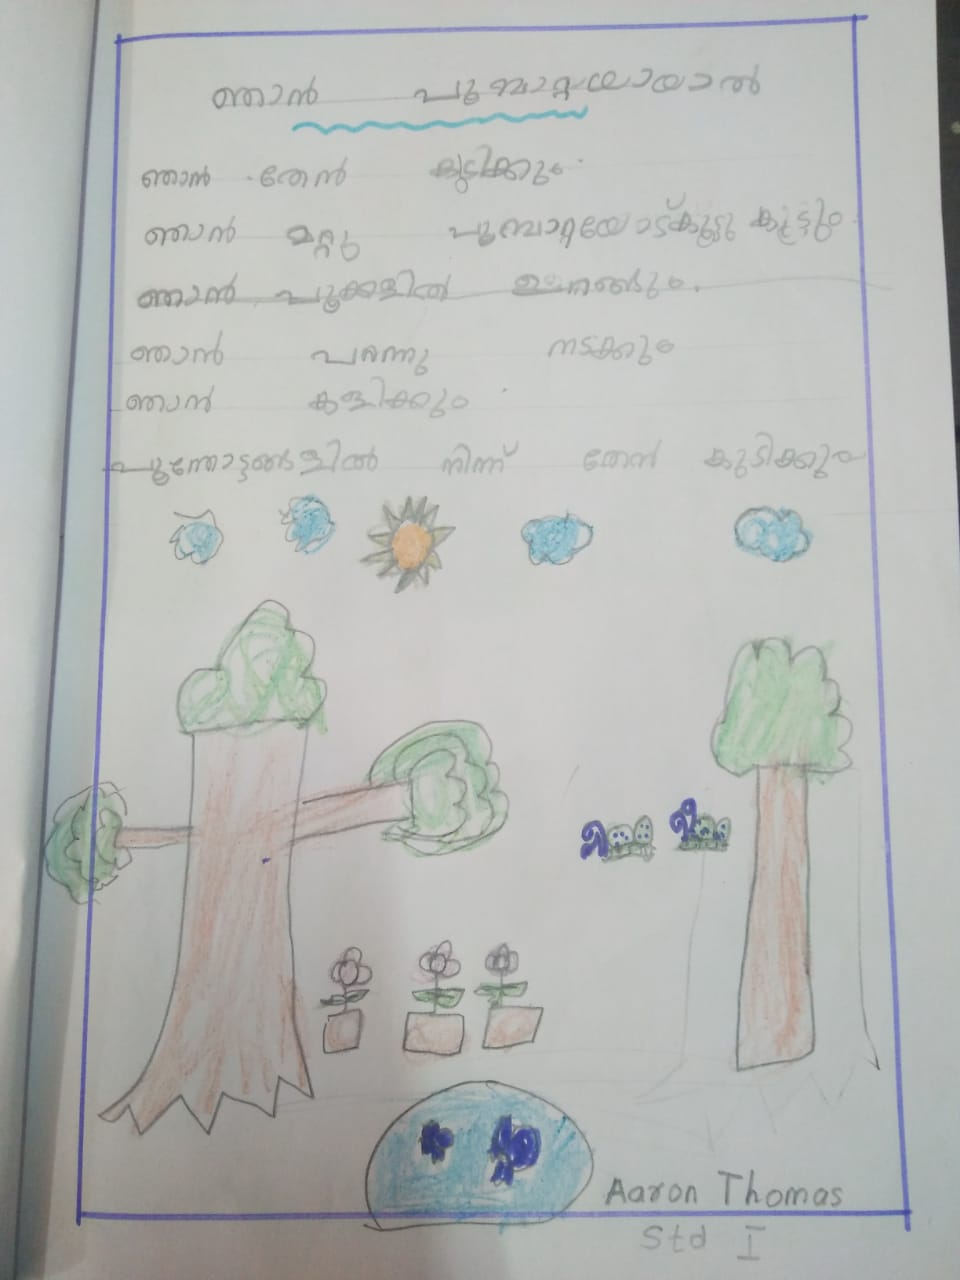 ഞാൻ പൂമ്പാറ്റയായാൽ
ഞാൻ തേൻ കുടിക്കും.
ഞാൻ മറ്റു പൂമ്പാറ്റയോട്കൂട്ടു കൂട്ടും
ഞാൻ പൂക്കളിൽ ഉറങ്ങും.
ഞാൻ പറന്നു നടക്കും
ഞാൻ കളിക്കും
പൂന്തോട്ടങ്ങളിൽ നിന്ന് തേൻ കുടിക്കും
Aaron Thomas
Std I